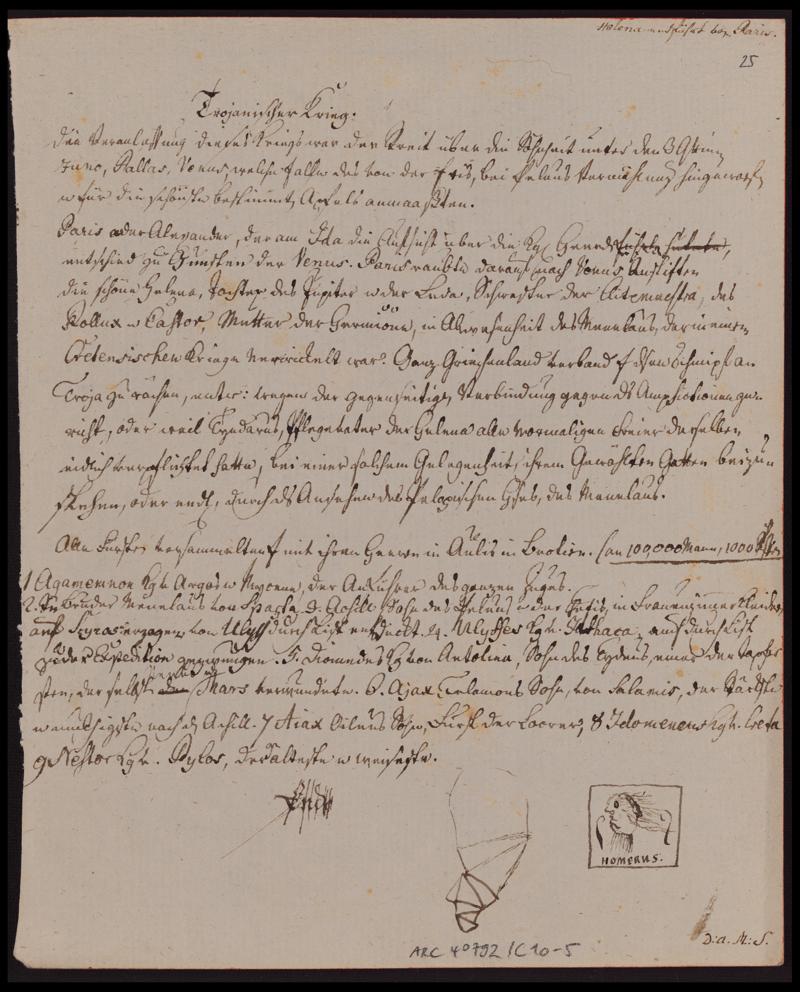 Helena entführt von Paris.
25
Trojanischer Krieg.
Die Veranlassung dieses Kriegs war der Streit über die Schönheit unter den 3 Göttinn
Juno, Pallas, Venus, welche alle des von der Eris, bei Peleus Vermählung hingeworf
u für die schönste bestimmt Apfels anmaaßten.
Paris oder Alexander, der am Ida die Aufsicht über die Heerde
entschied zu Gunsten der Venus. Paris raubte darauf nach Venus Anstiften
die schöne Helena, Tochter des Jupiter u der Leda, Schwester der Clitemnestra, des
Pollux u Castor, Mutter der Hermione, in Abwesenheit des Menelaus, der in einen
Cretensischen Kriege verwickelt war. Ganz Griechenland verband s diesen Schimpf an
Troja zu rächen, entw: wegen der gegenseitigen Verbindung gegen ds Amphictionenge-
richt, oder weil Tyndarus, Pflegevater der Helena alle vormaligen Freier derselben
eidlich verpflichtet hatte, bei einer solchen Gelegenheit, ihrem Gewählten Gatten beizu
stehen, oder endl, durch ds Ansehen des Pelopischen Hses, des Menelaus.
Alle Fürsten versammelten s mit ihren Heeren in Aulis in Beotien. (an 100,000 Mann, 1000 Schiffe
1 Agamemnon Kg v. Argos u Mycene, der Anführer des ganzen Zuges.
2. Sn Bruder Menelaus von Sparta 3. Achill Sohn des Peleus u der Thetis, in Frauenzimmer Kleider
auf Scyros erzogen, von Ulyss durch List entdeckt. 4. Ulysses Kg v. Ithaca, auch durch List
zu der Expedition gezwungen. 5. Diomedes Kg von Aetolien, Sohn des Tydeus, einer der tapfer
sten, der selbst Mars verwundete. 6. Ajax, Telamons Sohn, von Salamis, der stärkste
u muthigste nach d Achill. 7 Aiax Oileus Sohn, Fürst der Locrer, 8 Idomeneus Kg v. Creta
9 Nestor Kg v. Pylos, der älteste u weiseste.
Ende
HOMERUS.
D: a. M: S.
ARC 4° 792 / C 10-5